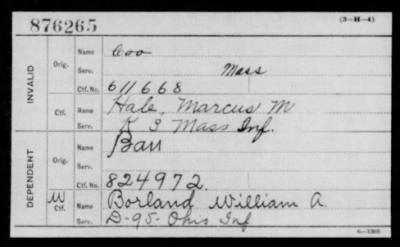 876265
(3-H-4)
INVALID
Orig.
Name Coo
Serv. Mass
Ctf. No. 611668
Ctf.
Name Hale, Marcus M
Serv. K 3 Mass Inf.
DEPENDENT
Orig.
Name Barr
Serv.
Ctf. No. 824972
W Ctf.
Name Borland William A.
Serv. D-95-Ohio Inf